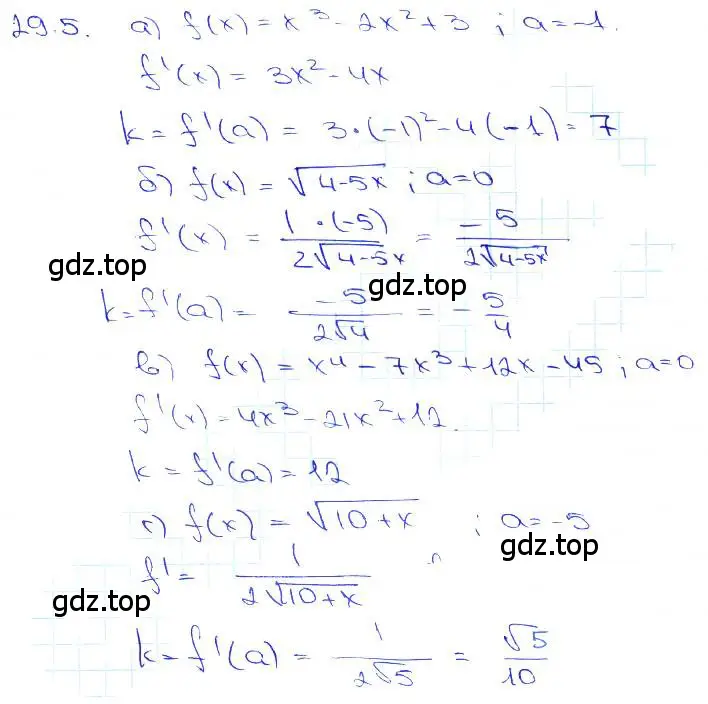 29.5. а) f(x) = x³ - 2x² + 3 ; a = -1.
f'(x) = 3x² - 4x
k = f'(a) = 3·(-1)² - 4(-1) = 7
б) f(x) = √(4-5x) ; a = 0
f'(x) = (1·(-5))/(2√(4-5x)) = (-5)/(2√(4-5x))
gdz.top
gdz.top
k = f'(a) = (-5)/(2√4) = -5/4
в) f(x) = x⁴ - 7x³ + 12x - 45 ; a = 0
f'(x) = 4x³ - 21x² + 12.
k = f'(a) = 12
г) f(x) = √(10+x) ; a = -5
gdz.top
f' = 1/(2√(10+x))
gdz.top
k = f'(a) = 1/(2√5) = √5/10